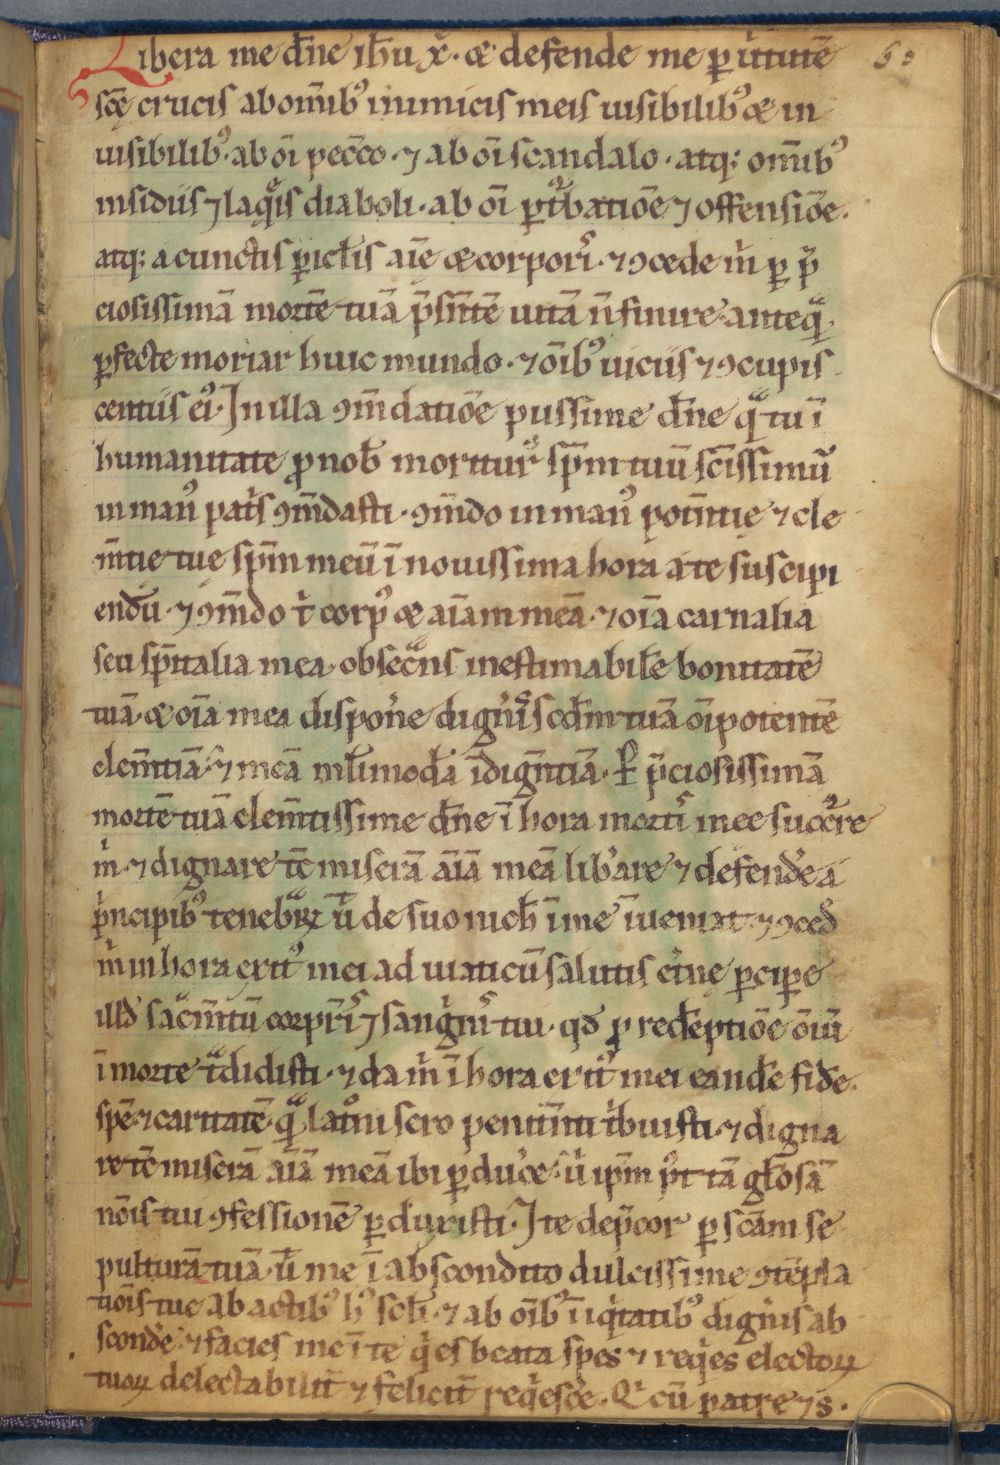 Libera me dñe ihu xp̄e. & defende me ꝑ uirtutē 53
scę crucis ab omībꝰ inimicis meis uisibilibꝰ & in
uisibilibꝰ. ab oī pecc̄o. ⁊ ab oī scandalo. atq; omībꝰ
insidiis ⁊ laqͣis diaboli. ab oī ꝑtᵘbatiōe ⁊ offensiōe.
atq; a cunctis ꝑicl̄is aīę & corporis. ⁊ ꝯcede m̄ ꝑ p̄
ciosissimā mortē tuā p̄sn̄tē uitā n̄ finire. anteqͣ.
ꝑfecte moriar huic mundo. ⁊ oībꝰ uiciis ⁊ ꝯcupis
centiis eiꝰ. In illa ꝯm̄datiōe piissime dñe qͣ tu ī
humanitate ꝓ nob̄ moriturꝰ sp̄m tuū scīssimū
in manꝰ patⁱs ꝯm̄dasti. ꝯm̄do in manꝰ potn̄tię ⁊ cle
m̄tię tuę sp̄m meū ī nouissima hora a te suscipi
endū. ⁊ ꝯm̄do tⁱ corpꝰ & aīam meā. ⁊ oīa carnalia
seu sp̄italia mea. obsecͣns inestimabilē bonitatē
tuā. & oīa mea dispon̄e digneris scd̄m tuā oīpotentē
clem̄tiā. ⁊ meā ml̄timodā īdign̄tiā. Ꝑ p̄ciosissimā
mortē tuā clem̄tissime dñe ī hora mortis mee succr̄re
m̄. ⁊ dignare tc̄ miserā aīā meā lib̄are ⁊ defend̄e a
pⁱncipibꝰ tenebͣꝝ ut̄ de suo nich̄ ī me īueniat. ⁊ ꝯced̄
m̄ in hora exitꝰ mei ad uiaticū salutis et̄nę ꝑcip̄e
illd̄ sacͣm̄tū corpr̄is ⁊ sangⁱnis tui. qd̄ ꝓ redēptiōe oīū
ī morte tͣdidisti. ⁊ da m̄ ī hora exitꝰ mei eandē fidē.
spē. ⁊ caritatē. qͣ latᵒni sero penitn̄ti tⁱbuisti. ⁊ digna
re tc̄ miserā aīā meā ibi ꝑduc̄e. uⁱ ip̄m pꝰt tā gl̄osā
nōis tui ꝯfessionē ꝑduxisti. Ite dep̄cor ꝑ scām se
pulturā tuā. ut̄ me ī abscondito dulcissime ꝯtēpla
tiōis tue ab actibꝰ hꝰ scl̄i. ⁊ ab oībꝰ īiqⁱtatibꝰ digneris ab
scond̄e. ⁊ facies me ī te qⁱ es beata spes ⁊ reqⁱes electoꝝ
tuoꝝ delectabilit̄ ⁊ felicit̄ reqⁱesce. Qⁱ cū patre ⁊ s.